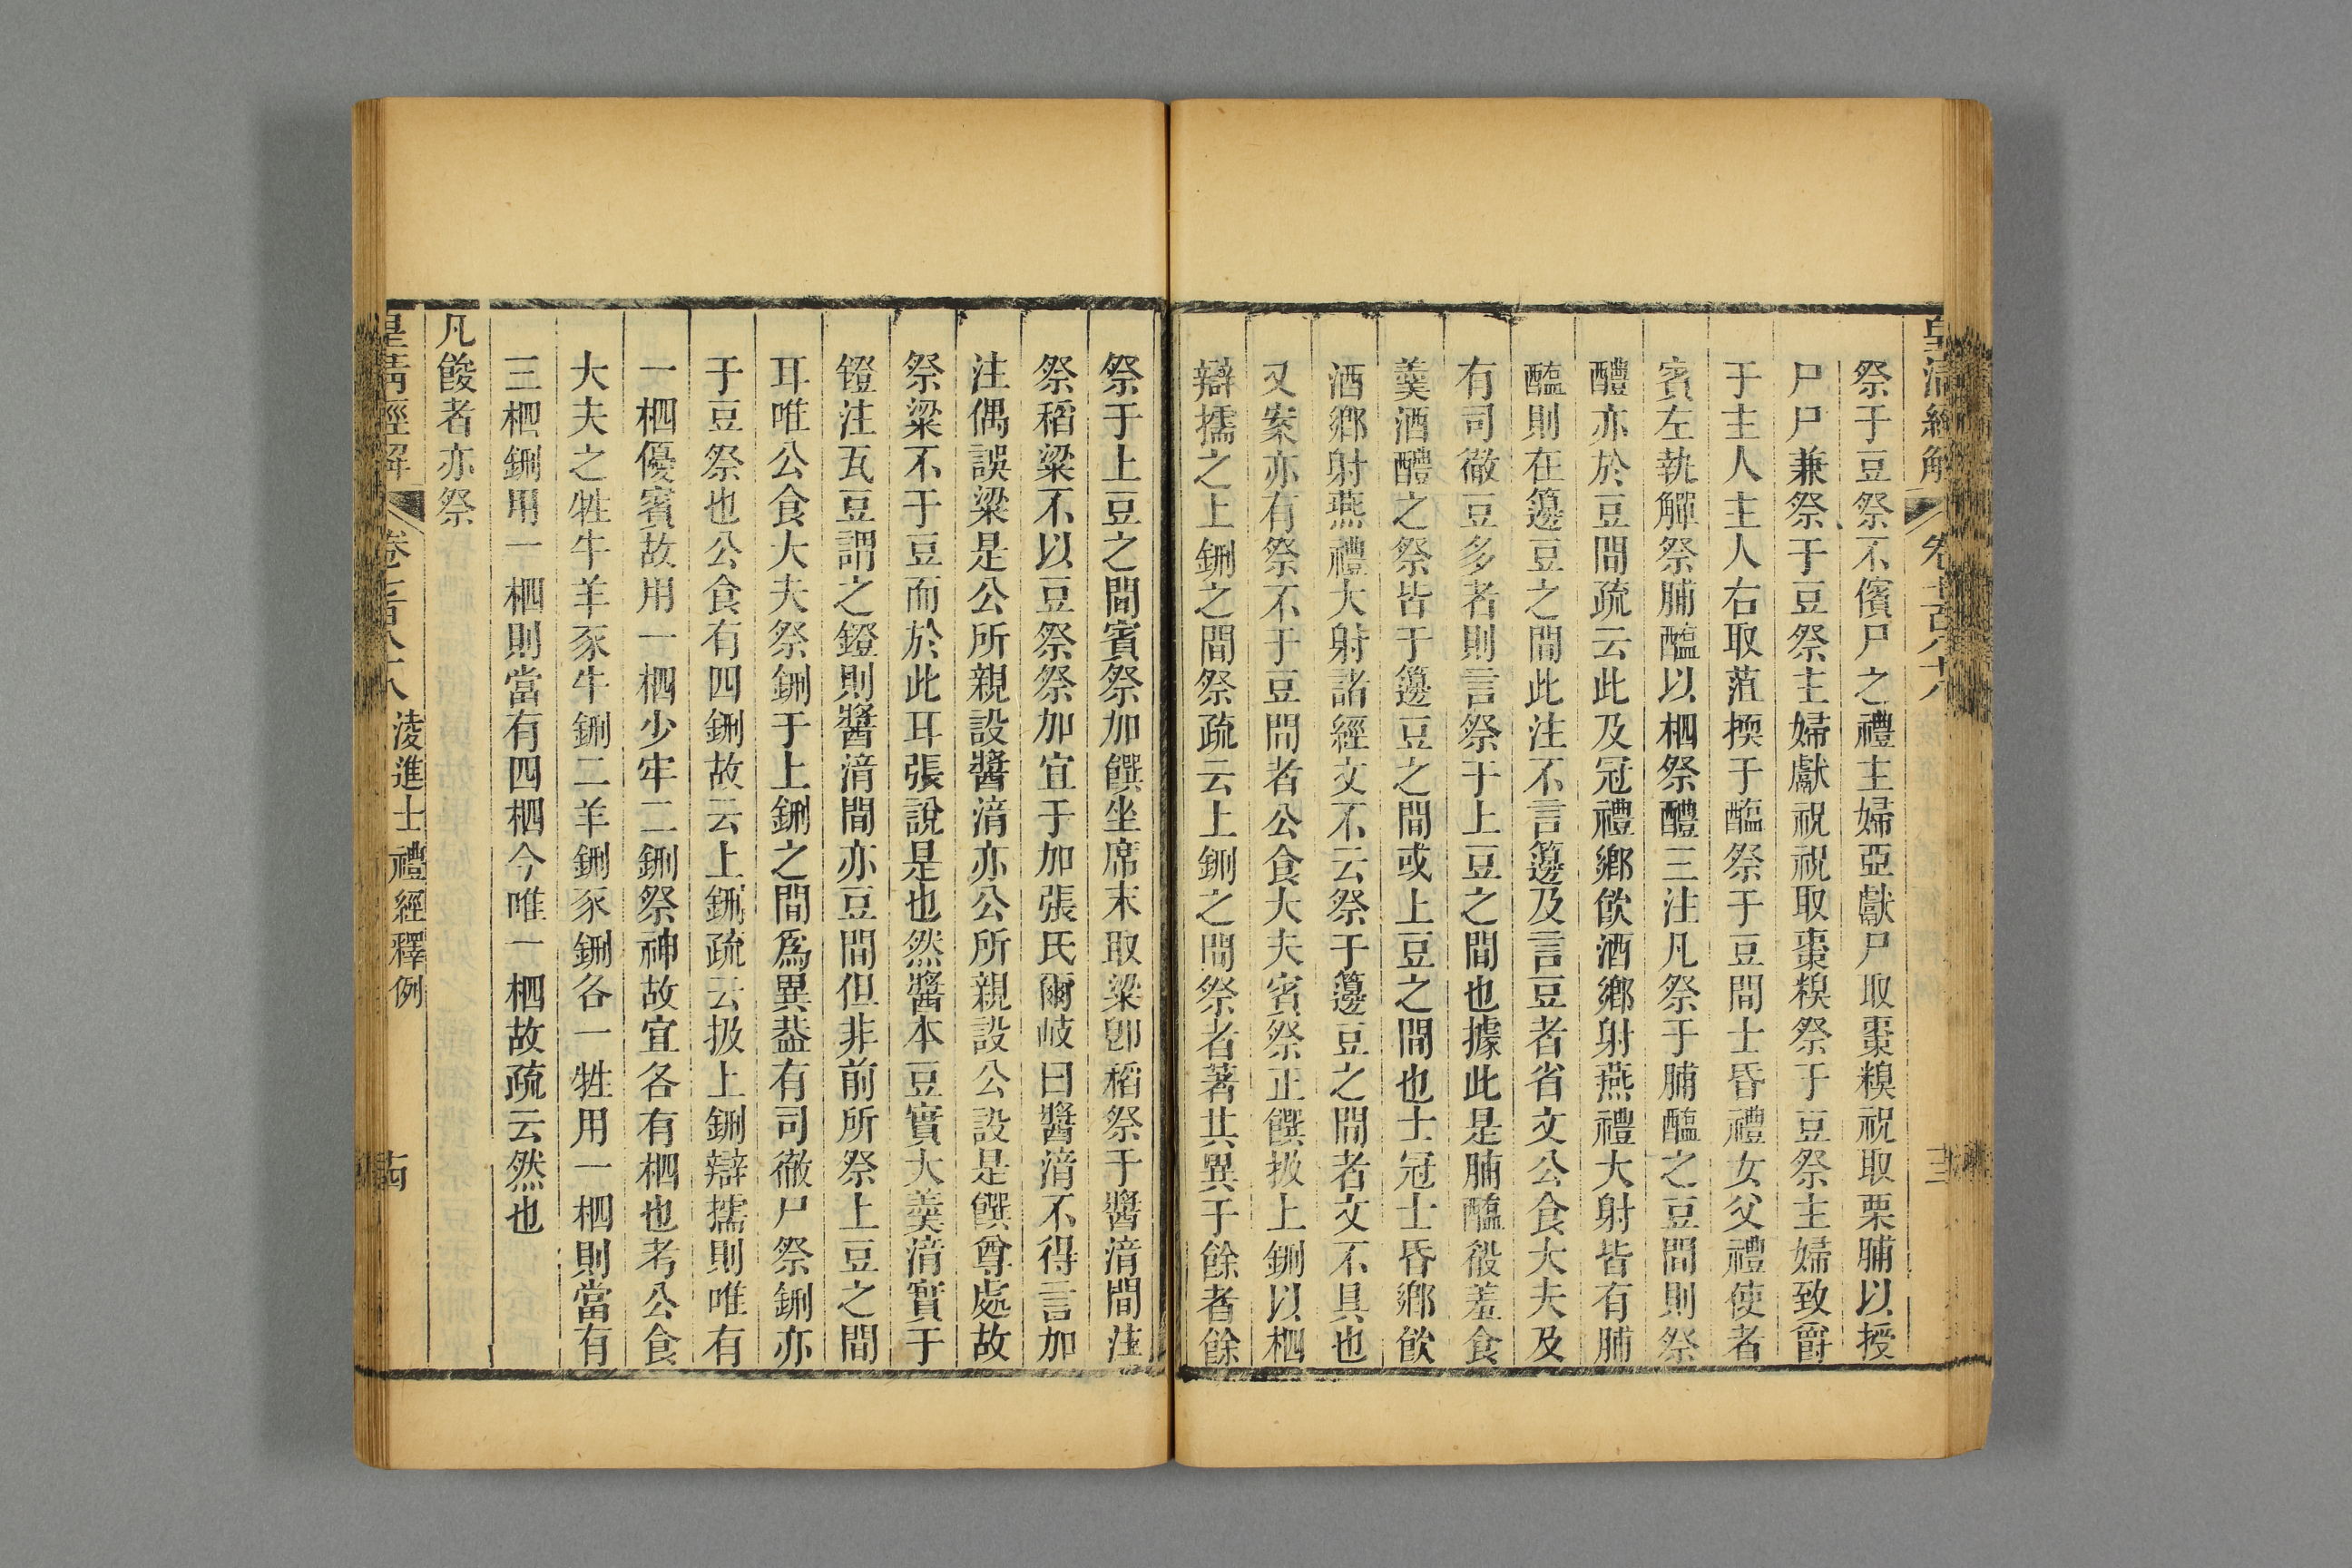 皇清經解
卷七百八十八
十三
祭于豆祭不儐尸之禮主婦亞獻尸取棗糗祝取栗脯以授
尸尸兼祭于豆祭主婦獻祝祝取棗糗祭于豆祭主婦致爵
于主人主人右取菹㨎于醢祭于豆間士昏禮女父禮使者
賓左執觶祭脯醢以柶祭醴三注凡祭于脯醢之豆間則祭
醴亦於豆間疏云此及冠禮鄉飲酒鄉射燕禮大射皆有脯
醢則在籩豆之間此注不言籩及言豆者省文公食大夫及
有司徹豆多者則言祭于上豆之間也據此是脯醢殽羞食
羹酒醴之祭皆于籩豆之間或上豆之間也士冠士昏鄉飲
酒鄉射燕禮大射諸經文不云祭于籩豆之間者文不具也
又案亦有祭不于豆間者公食大夫賓祭正饌扱上鉶以柶
辯擩之上鉶之間祭疏云上鉶之間祭者著其異于餘者餘
祭于上豆之間賓祭加饌坐席末取粱卽稻祭于醬湆間注
祭稻粱不以豆祭祭加宜于加張氏爾岐曰醬湆不得言加
注偶誤粱是公所親設醬湆亦公所親設公設是饌尊處故
祭粱不于豆而於此耳張說是也然醬本豆實大羹湆實于
鐙注瓦豆謂之鐙則醬湆間亦豆間但非前所祭上豆之間
耳唯公食大夫祭鉶于上鉶之間爲異葢有司徹尸祭鉶亦
于豆祭也公食有四鉶故云上鉶疏云扱上鉶辯擩則唯有
一柶優賓故用一柶少牢二鉶祭神故宜各有柶也考公食
大夫之牲牛羊豕牛鉶二羊鉶豕鉶各一牲用一柶則當有
三柶鉶用一柶則當有四柶今唯一柶故疏云然也
凡餕者亦祭
皇清經解
卷七百八十八
淩進士禮經釋例
十四